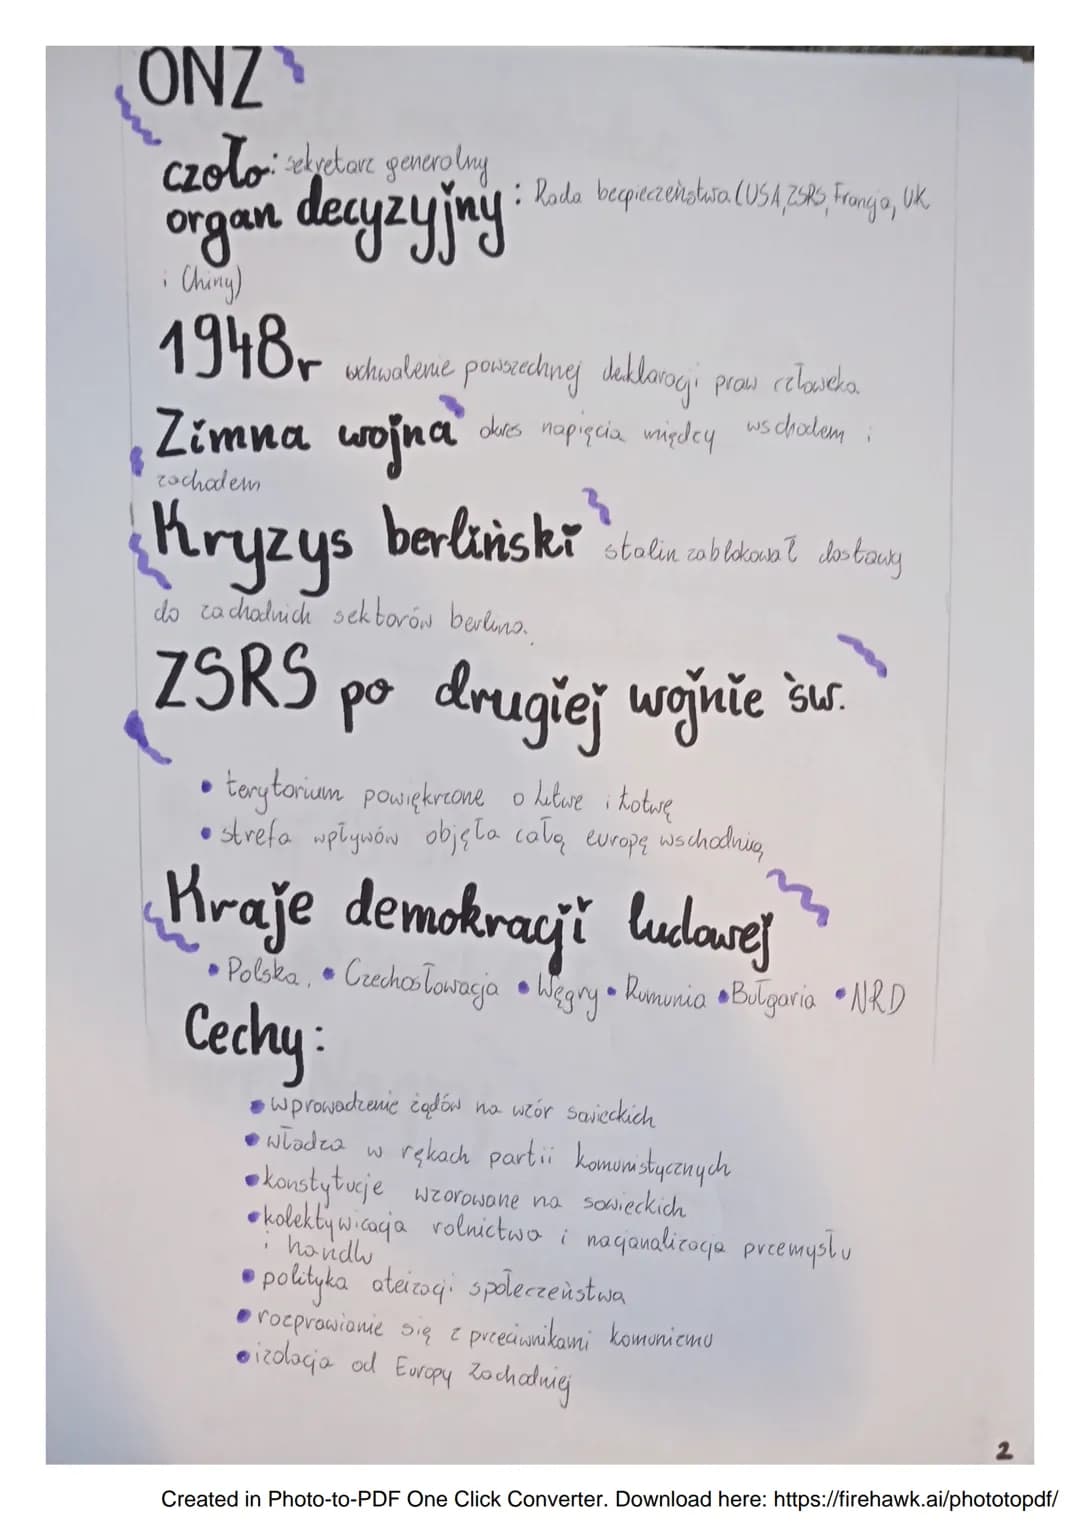 ONZ
czoło: sekretarz generalny
organ decyzyjny: Rada bezpieczeństwa (USA, ZSRS, Francja, UK
i Chiny)
1948r uchwalenie powszechnej deklaracji praw człowieka.
Zimna wojna okres napięcia między wschodem i
zachodem
Kryzys berliński stalin zablokował dostawy
do zachodnich sektorów berlina.
ZSRS po drugiej wojnie św.
• terytorium powiększone o Litwe i Łotwę
• strefa wpływów objęła całą europę wschodnią
Kraje demokracji ludowej
• Polska, • Czechosłowacja • Węgry • Rumunia • Bułgaria • NRD
Cechy:
• wprowadzenie żądów na wzór sowieckich
• władza w rękach partii komunistycznych
• konstytucje wzorowane na sowieckich
• kolektywizacja rolnictwa i nacjonalizacja przemysłu
i handlu
• polityka ateizacji społeczeństwa
• rozprawianie się z przeciwnikami komunizmu
• izolacja od Europy Zachodniej
2
Created in Photo-to-PDF One Click Converter. Download here: https://firehawk.ai/phototopdf/